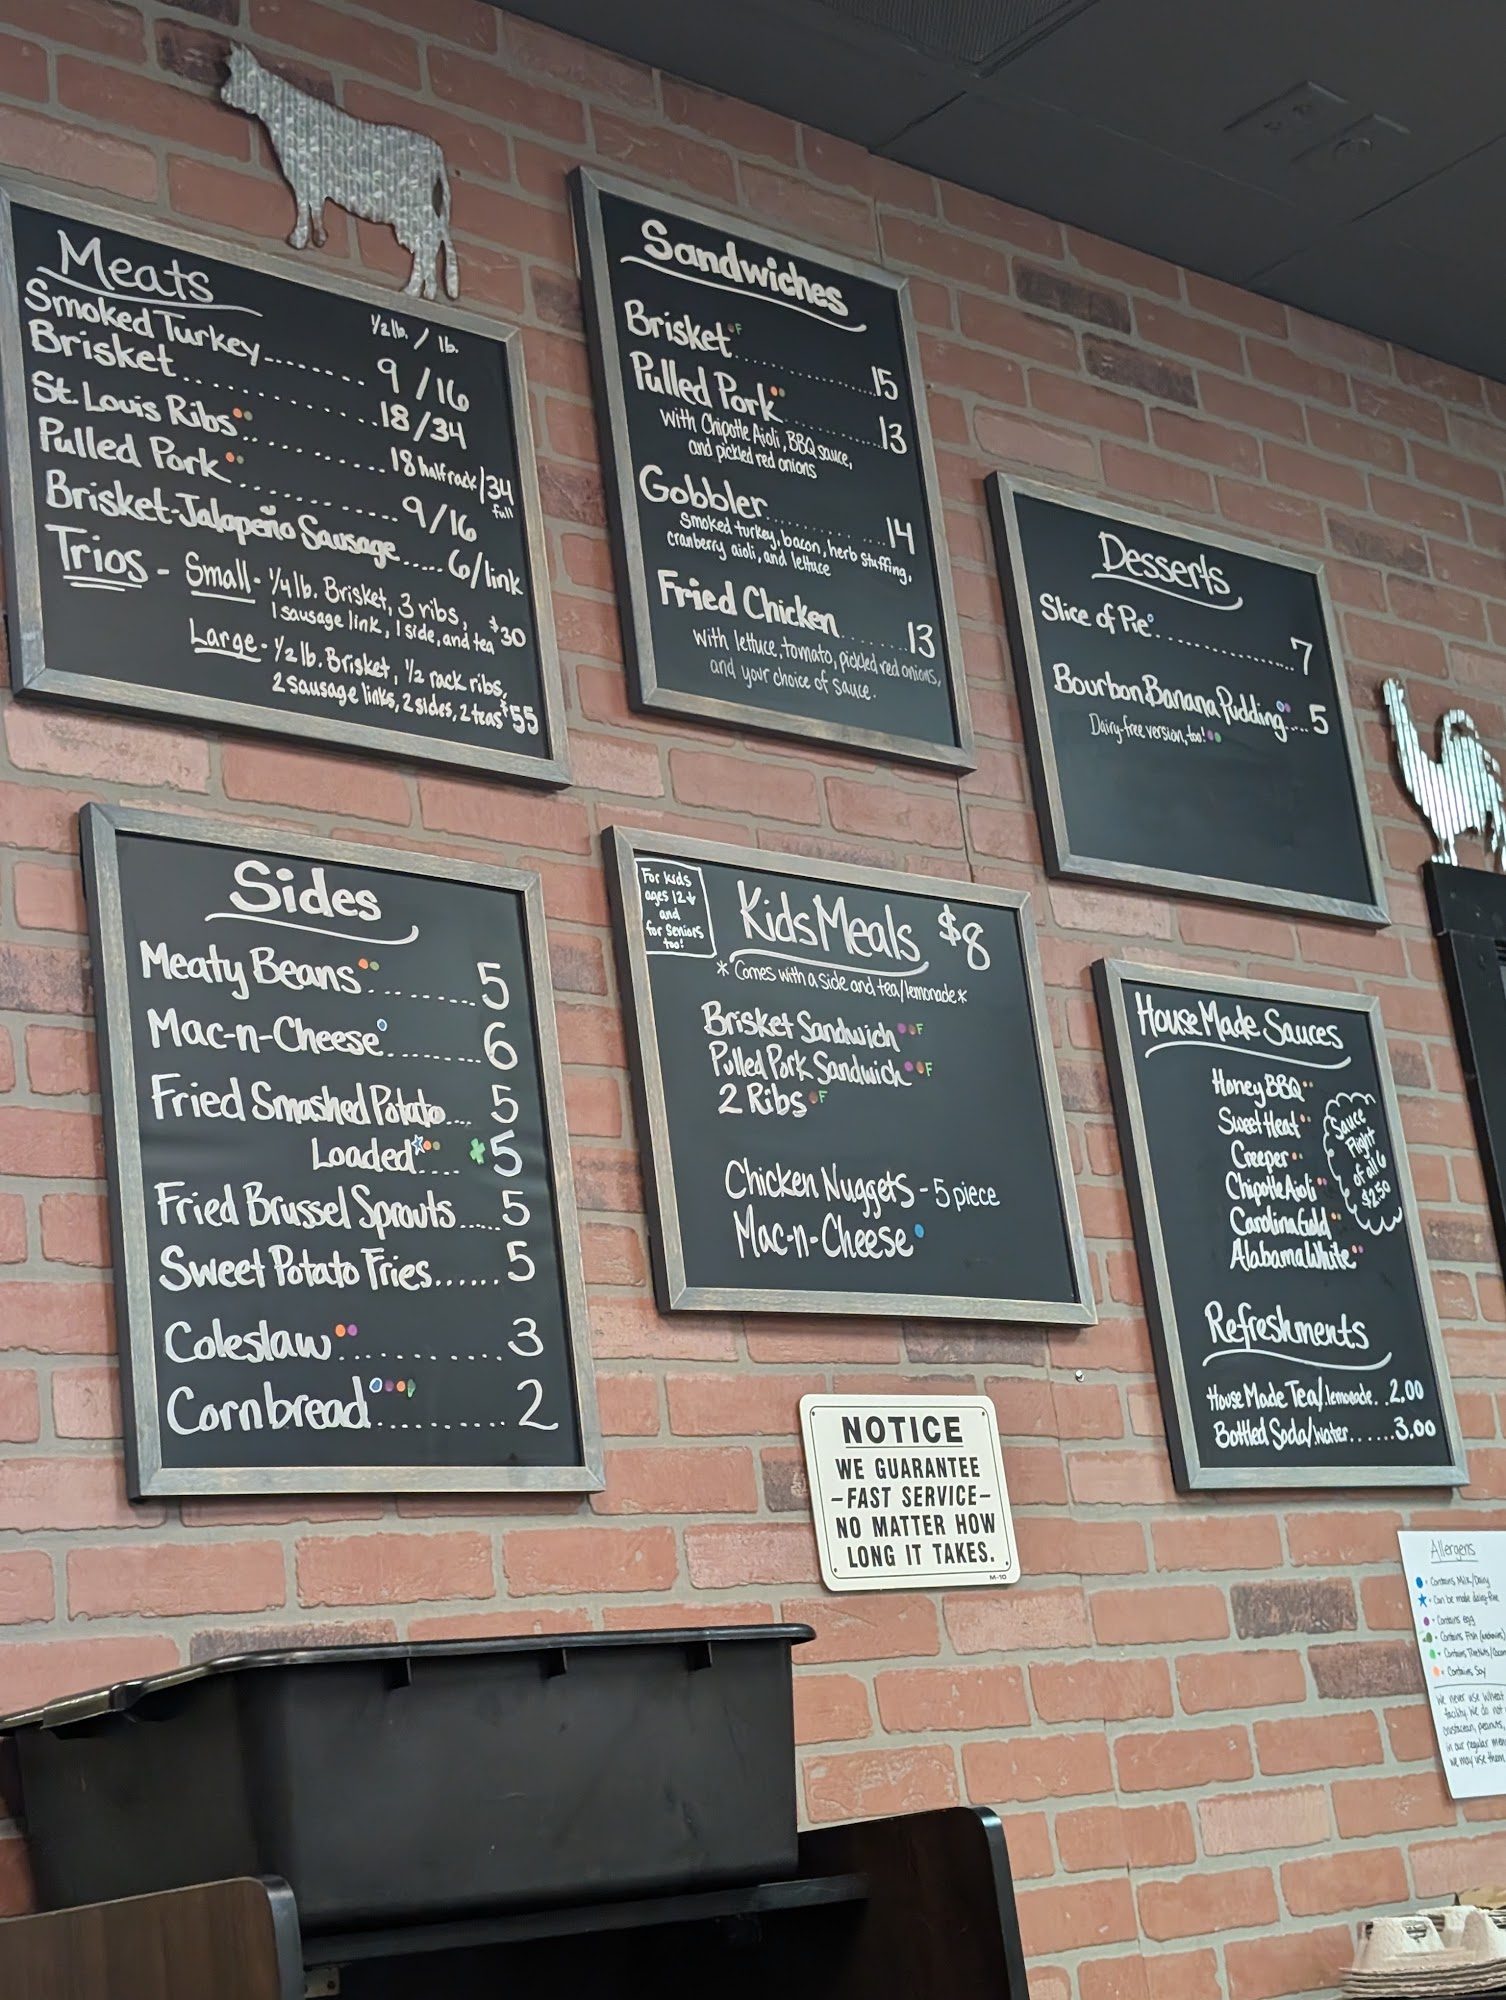 Meats
1/2 lb. / lb.
Smoked Turkey........ 9/16
Brisket.................. 18/34
St. Louis Ribs............... 18 half rack/34 full
Pulled Pork.............. 9/16
Brisket-Jalapeño Sausage...... 6/link
Trios - Small - 1/4 lb. Brisket, 3 ribs,
1 sausage link, 1 side, and tea $30
Large - 1/2 lb. Brisket, 1/2 rack ribs,
2 sausage links, 2 sides, 2 teas $55
Sandwiches
Brisket F.............. 15
Pulled Pork.......... 13
with Chipotle Aioli, BBQ sauce,
and pickled red onions
Gobbler............ 14
Smoked turkey, bacon, herb stuffing,
cranberry aioli, and lettuce
Fried Chicken...... 13
with lettuce, tomato, pickled red onions,
and your choice of sauce.
Desserts
Slice of Pie.............. 7
Bourbon Banana Pudding.... 5
Dairy-free version, too!
Sides
Meaty Beans......... 5
Mac-n-Cheese........ 6
Fried Smashed Potato.... 5
Loaded.... 5
Fried Brussel Sprouts..... 5
Sweet Potato Fries...... 5
Coleslaw........... 3
Cornbread......... 2
For kids
ages 12↓
and
for Seniors
too!
Kids Meals $8
* Comes with a side and tea/lemonade *
Brisket Sandwich F
Pulled Pork Sandwich F
2 Ribs F
Chicken Nuggets - 5 piece
Mac-n-Cheese
House Made Sauces
Honey BBQ
Sweet Heat
Creeper
Chipotle Aioli
Carolina Gold
Alabama White
Sauce
Flight
of all 6
$2.50
Refreshments
House Made Tea/lemonade.. 2.00
Bottled Soda/water...... 3.00
NOTICE
WE GUARANTEE
-FAST SERVICE-
NO MATTER HOW
LONG IT TAKES.
M-10
Allergens
= Contains Milk/Dairy
= Can be made dairy-free
= Contains egg
= Contains Fish
= Contains
= Contains Soy
We never use wheat
facility. We do not
crustacean, peanuts,
in our regular
we may use them